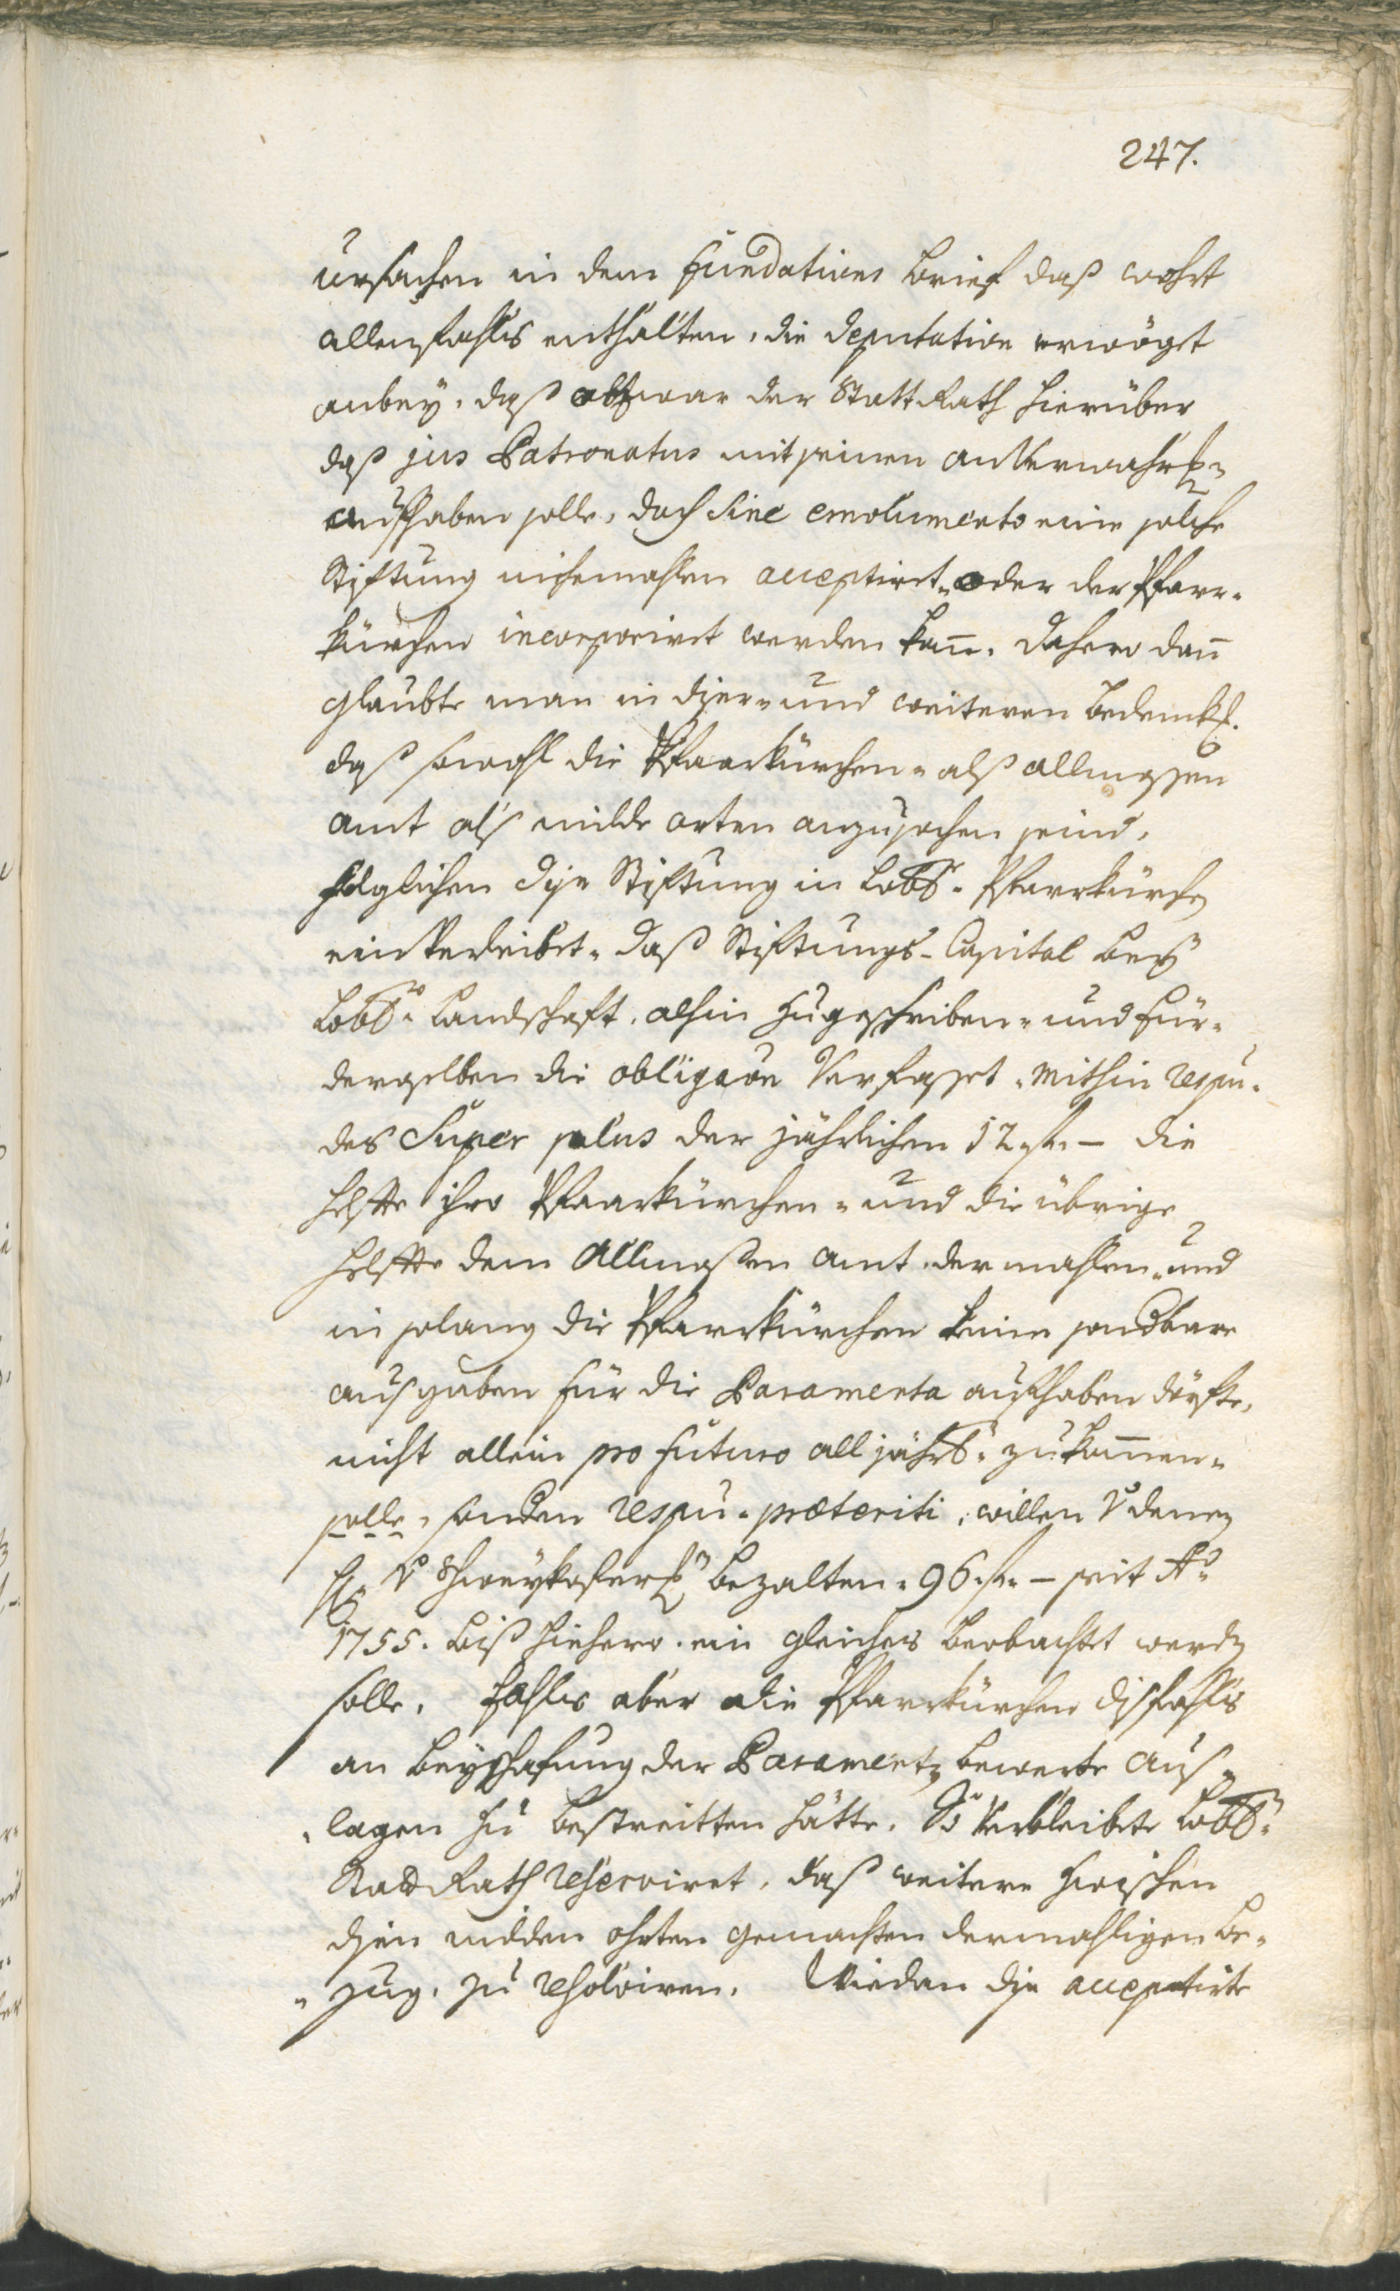 247.
ursachen in dem Fundations brief daß wohrt
allenfahls enthalten, die Deputation erwöget
anbey, daß obzwar der Statt Rath hierüber
daß jus Patronatus mit seinen anverwahrt-
aufhaben solle, doch Sine emolumento eine solche
Stiftung niehemahlen acceptiret- oder der Pfarr-
kürchen incorporiret werden kan̄. Dahero dan̄
glaubte man in diser- und weiteren bedenkh.
daß sowohl die Pfaarkürchen- alß allmossen
amt alß milde orten anzusehen seind,
folglichen dise Stiftung in Lobl. Pfarrkürchen
einverleibet- daß Stiftungs-Capital bey
Lobl. Landschaft alhin zugeschriben- und für-
derselben die obligaōn Verfasset. Mithin respu.
des Super plus der jährlichen 12 fl. – die
helfte ihro Pfaarkürchen- und die übrige
helfte dem Allmosen amt dermahlen- und
in solang die Pfarrkürchen keine sondbare
ausgaben für die Paramenta aufhaben dörfte,
nicht allein pro futuro alljährl. zukom̄en-
solle, sondern respu. præteriti, willen v denen
H v bezalten- 96 fl. – seit Aō
1755. biß hiehero ein gleiches beobachtet werden
solle. fahls aber die Pfarrkürchen dißfahls
an beyschafung der Paramenten bewerte aus-
lagen zu bestreitten hätte. So Verbleibete Lobl.
Stadt Rath reserviret, daß weitere zwischen
disen milden ohrten gemachten dermahligen be-
zug. zu resolviren. Wie dan die acceptirte